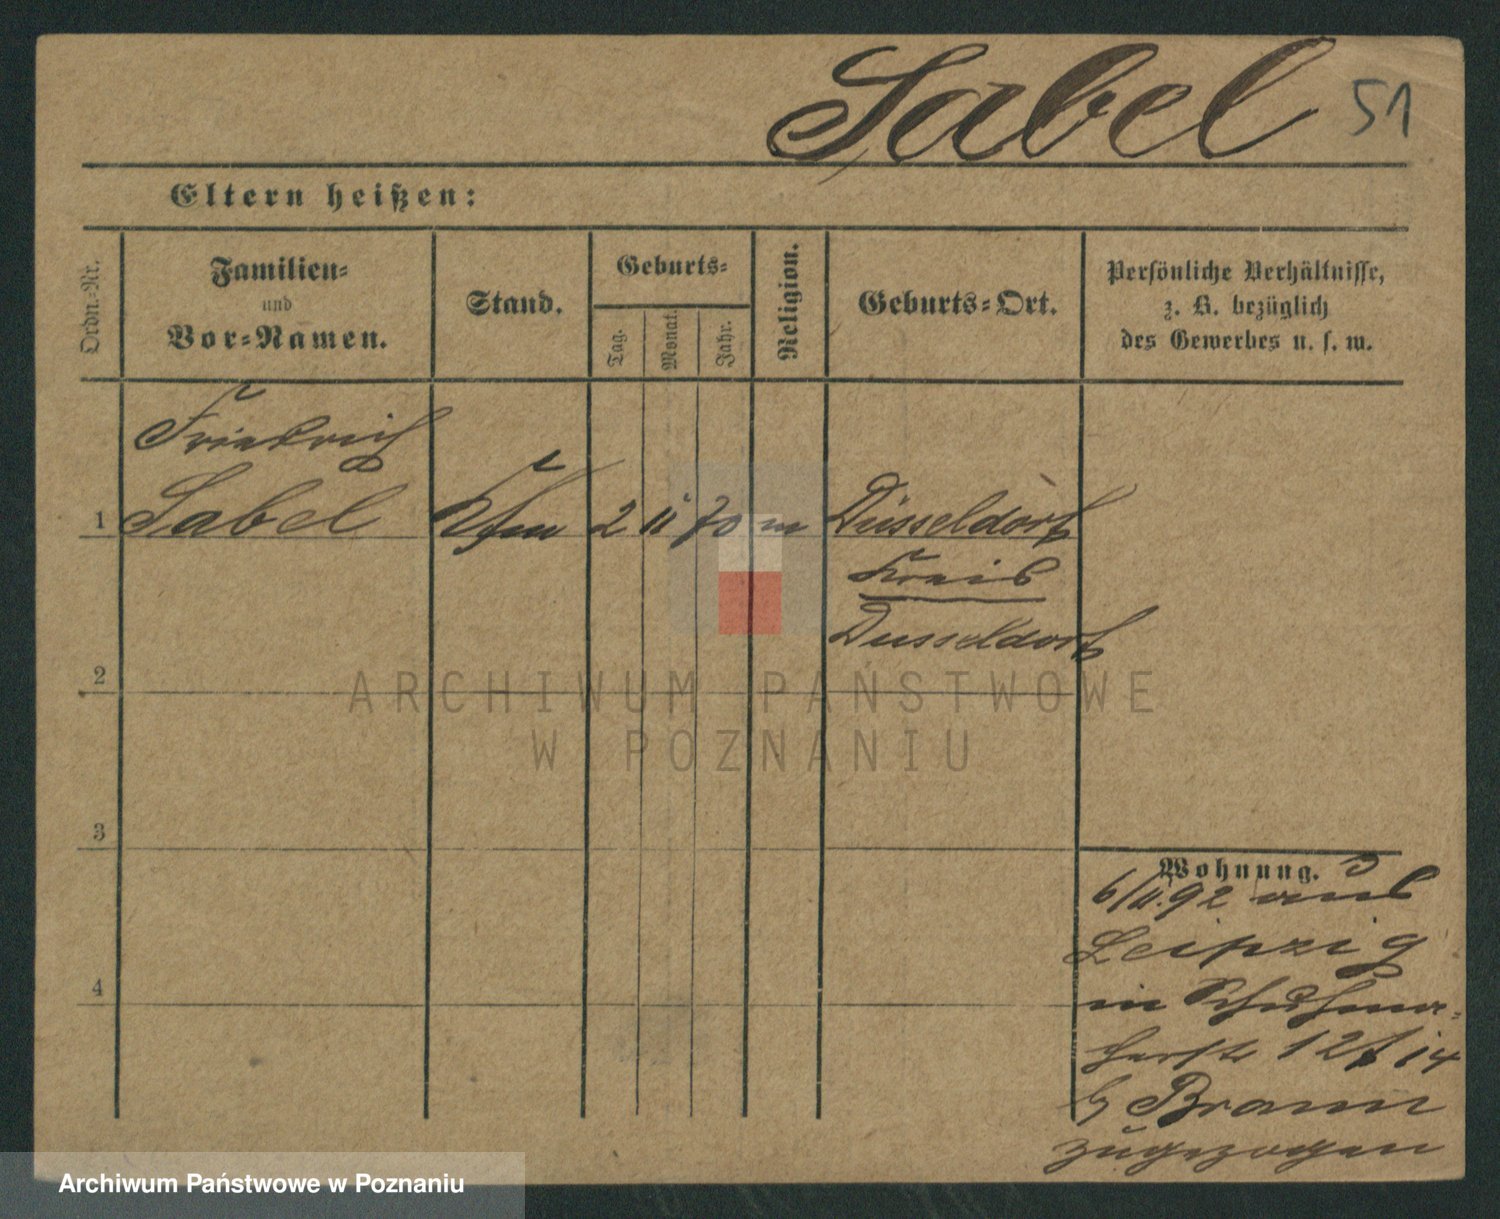 Sabel 51
Eltern heißen:
Ordn.-Nr.
Familien-
und
Vor-Namen.
Stand.
Geburts-
Tag.
Monat.
Jahr.
Religion.
Geburts-Ort.
Persönliche Verhältnisse,
z. B. bezüglich
des Gewerbes u. s. w.
Friedrich
1 Sabel 2 11 70 m Düsseldorf
Kreis
Düsseldorf
2
3
4
Wohnung.
6/11.92 aus
Leipzig
in Schuhma-
cherstr 12 14
b Braun
zugezogen
ARCHIWUM PAŃSTWOWE
W POZNANIU
Archiwum Państwowe w Poznaniu